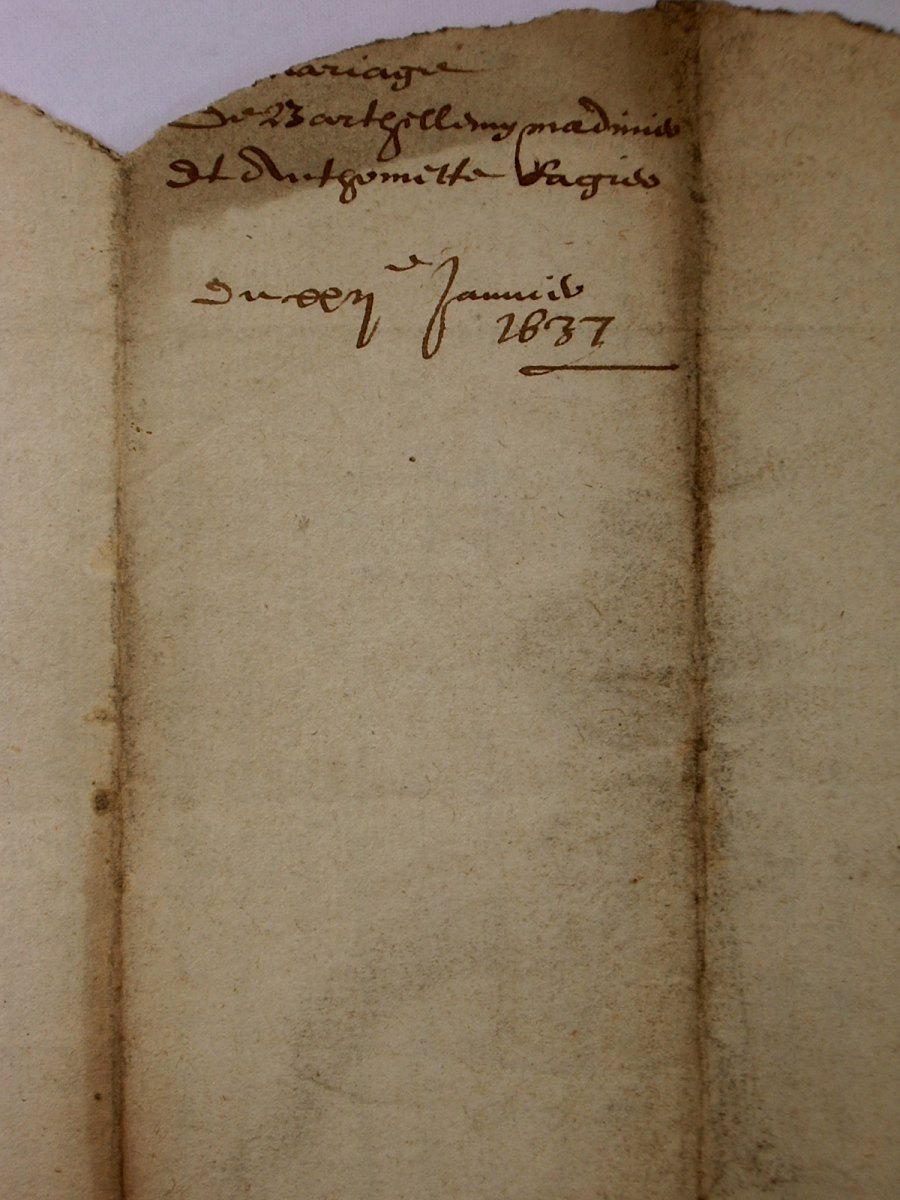 mariage
de Barthellemy madinier
et Anthoinette Ragier
du xxij e Janvier
1637